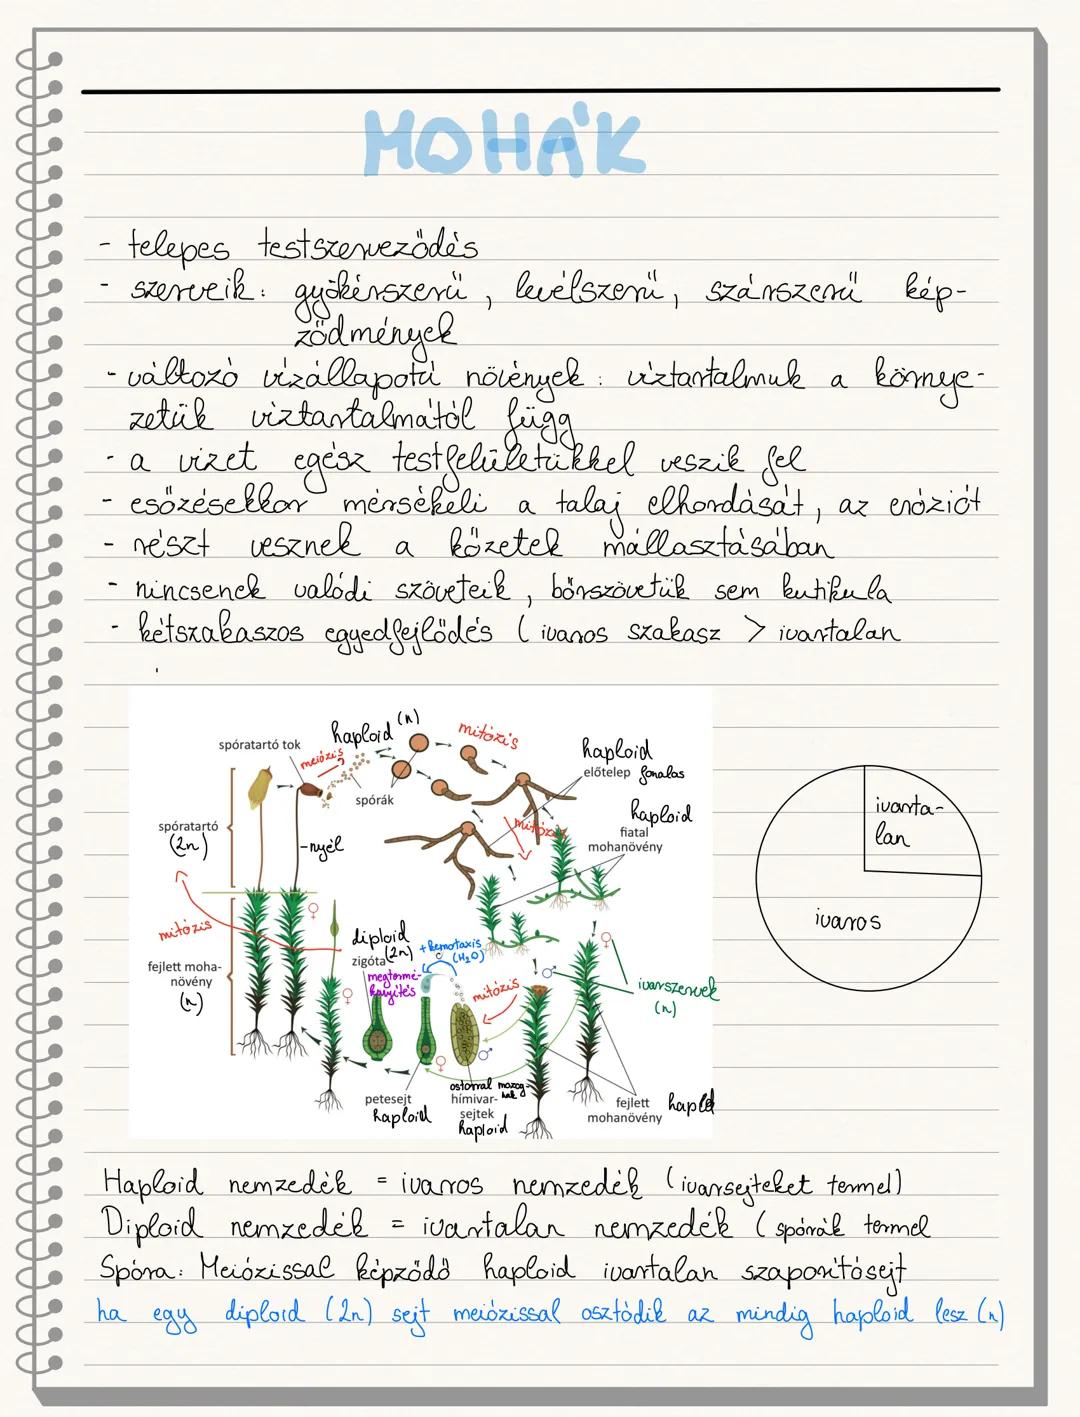 MOHÁK
- telepes testszerveződés
- szerveik: gyökérszerű, levélszerű, szárszerű kép-
ződmények
- változó vízállapotú növények: víztartalmuk a környe-
zetük víztartalmától függ
- a vizet egész testfelületükkel veszik fel
- esőzésekkor mérsékeli a talaj elhordását, az eróziót
- részt vesznek a kőzetek mállasztásában
- nincsenek valódi szöveteik, bőrszövetük sem kutikula
- kétszakaszos egyedfejlődés (ivaros szakasz > ivartalan
haploid (n)
mitózis
spóratartó tok
meiózis
haploid
előtelep fonalas
spórák
haploid
fiatal
mohanövény
mitózis
spóratartó
(2n)
-nyél
ivarta-
lan
ivaros
mitózis
diploid
(2n)
zigóta
+kemotaxis
(H₂O)
megtermé-
kenyítés
fejlett moha-
növény
(n)
mitózis
ivarszervek
(n)
petesejt
haploid
ostorral mozog-
nak
hímivar-
sejtek
haploid
fejlett
mohanövény
haploid
Haploid nemzedék = ivaros nemzedék (ivarsejteket termel)
Diploid nemzedék = ivartalan nemzedék (spórák termel
Spóra: Meiózissal képződő haploid ivartalan szaporítósejt
ha egy diploid (2n) sejt meiózissal osztódik az mindig haploid lesz (n)